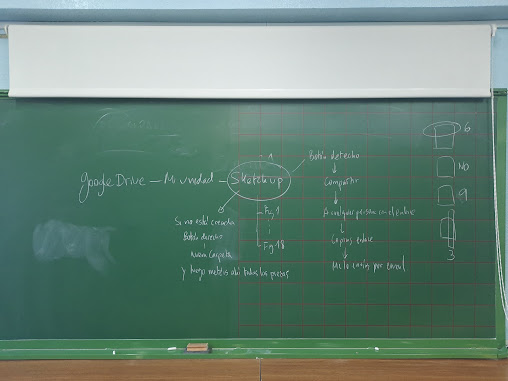 Google Drive — Mi unidad — Sketchup
Si no está creada
Botón derecho
Nueva Carpeta
y luego metéis ahí todas las piezas
Fig 1
Fig 18
Botón derecho
Compartir
A cualquier persona con el enlace
Copias enlace
Me lo envías por email
6
NO
9
3